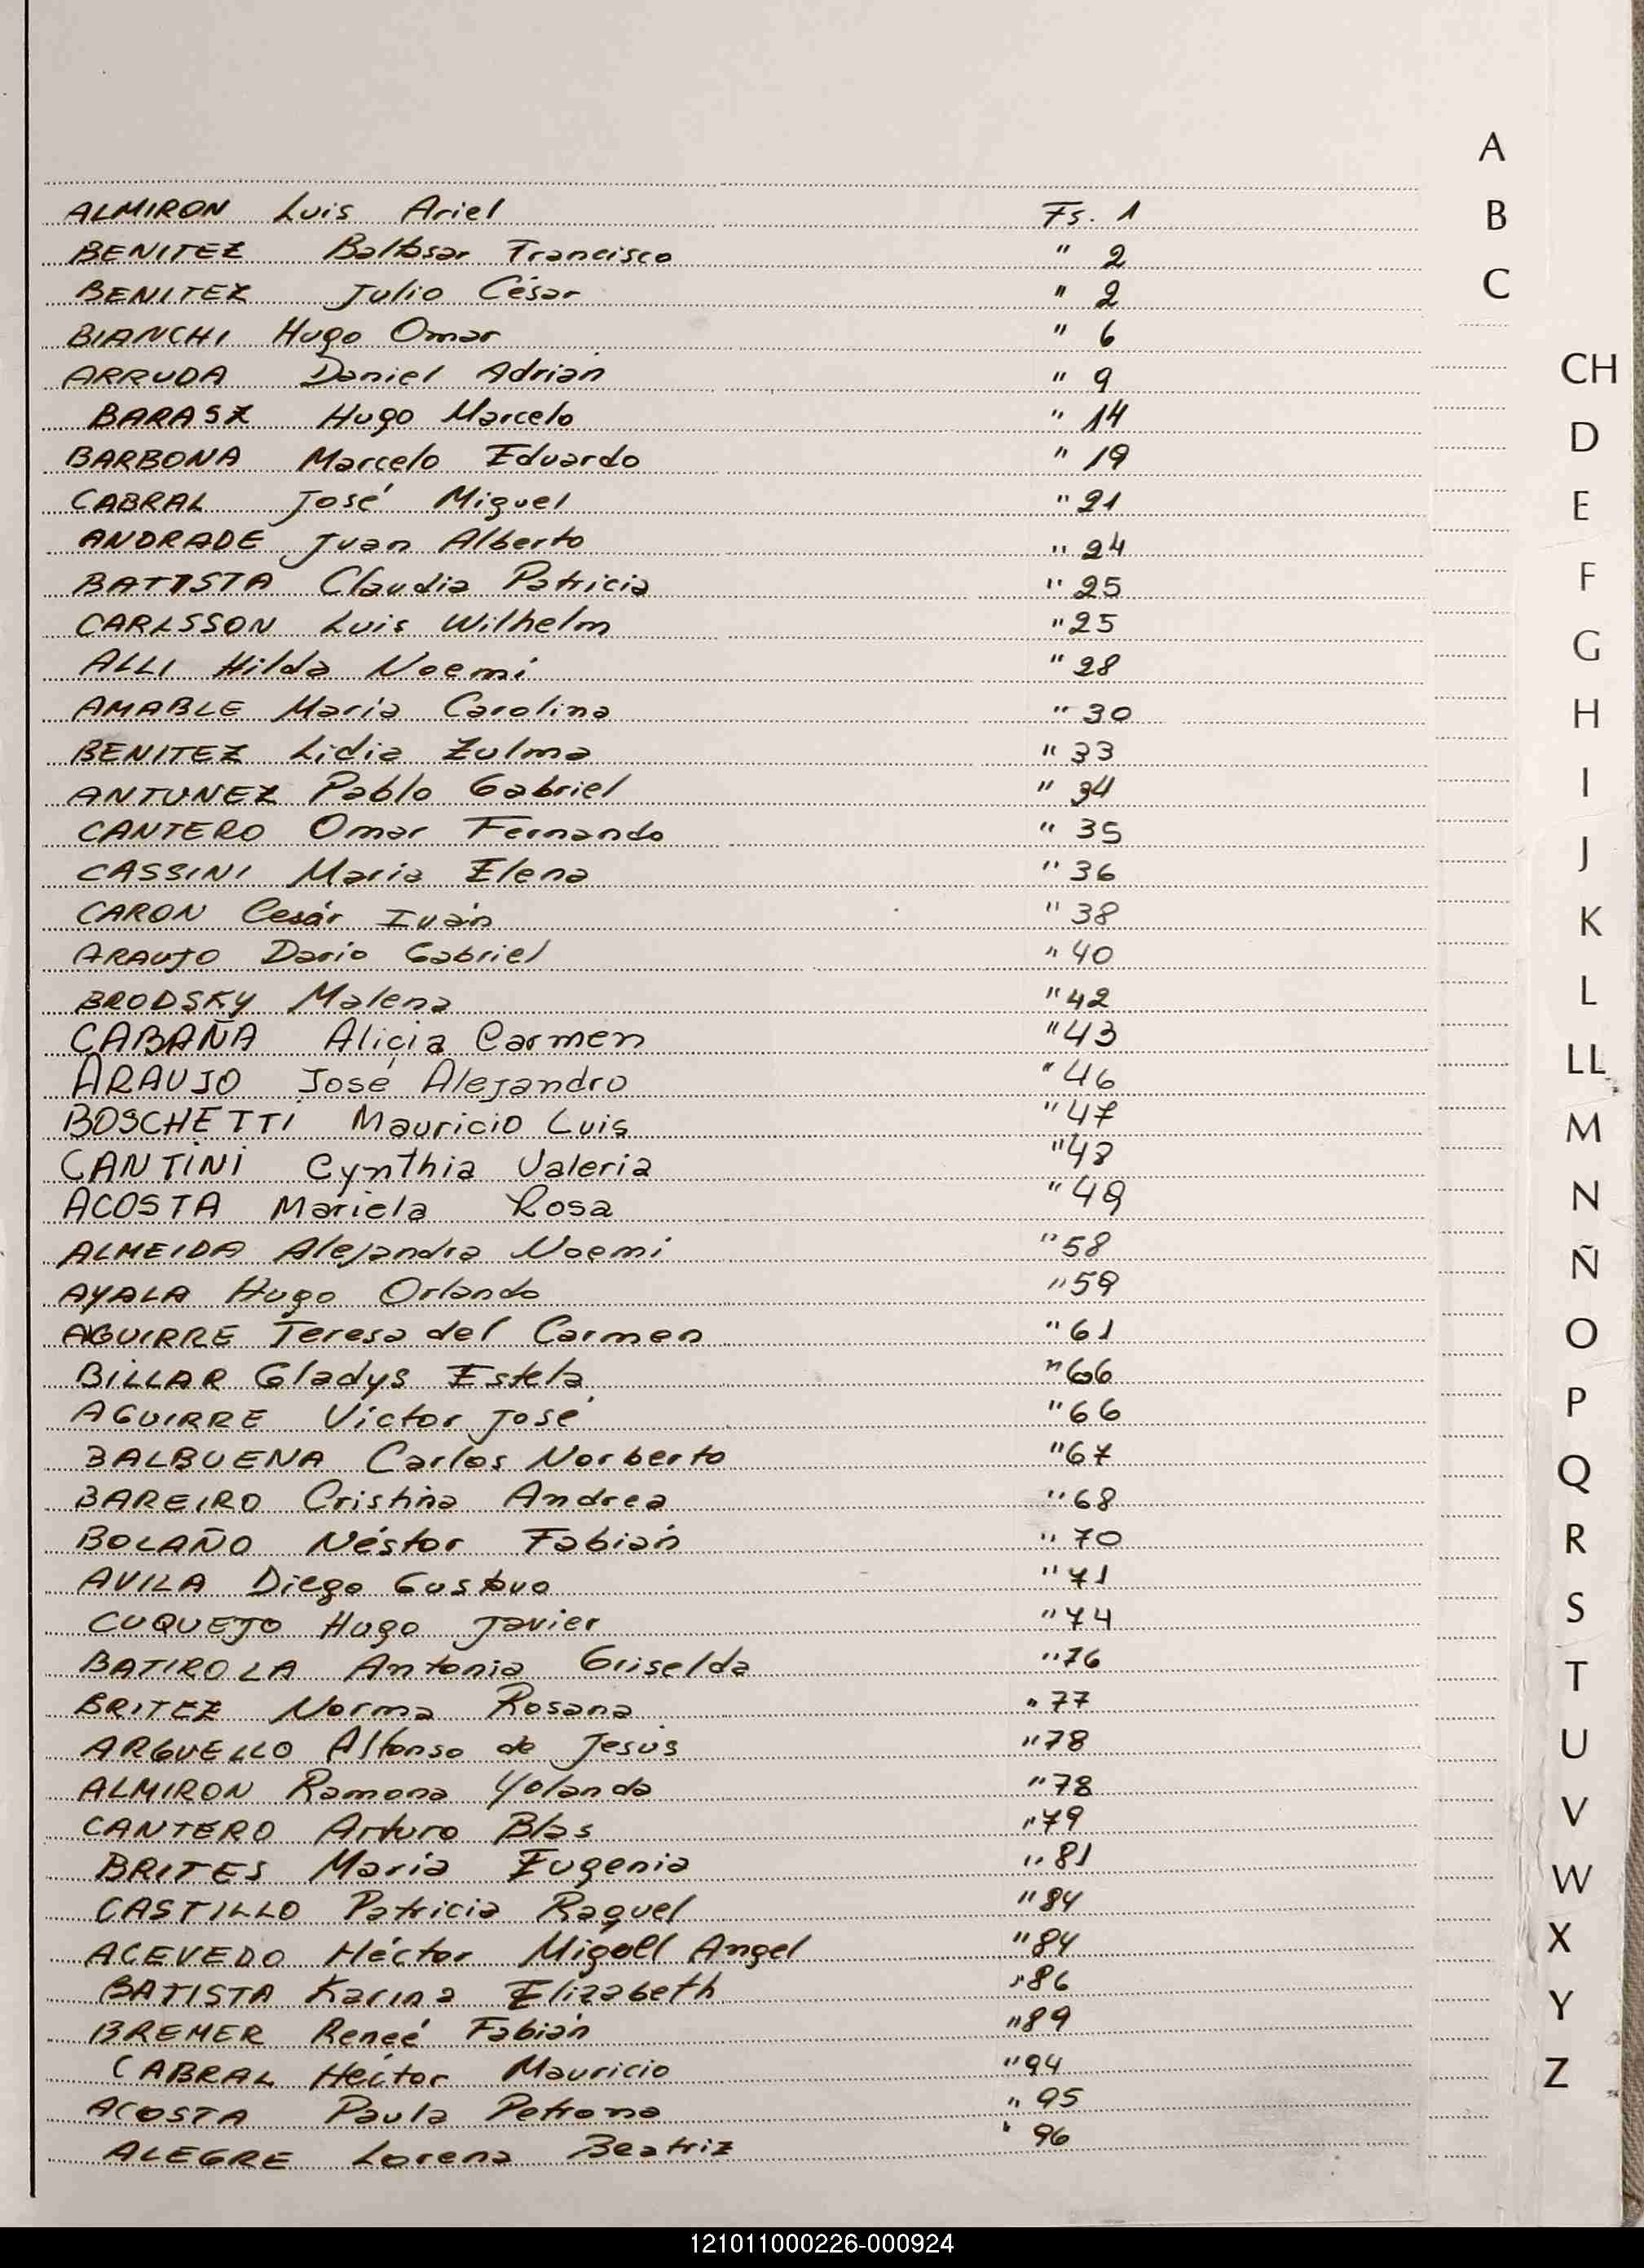 A
ALMIRON Luis Ariel Fs. 1
B
BENITEZ Baltasar Francisco " 2
BENITEZ Julio César " 2
C
BIANCHI Hugo Omar " 6
ARRUDA Daniel Adrián " 9
CH
BARASZ Hugo Marcelo " 14
BARBONA Marcelo Eduardo " 19
D
CABRAL José Miguel " 21
E
ANDRADE Juan Alberto " 24
BATISTA Claudia Patricia " 25
F
CARLSSON Luis Wilhelm " 25
ALLI Hilda Noemí " 28
G
AMABLE María Carolina " 30
H
BENITEZ Lidia Zulma " 33
ANTUNEZ Pablo Gabriel " 34
I
CANTERO Omar Fernando " 35
CASSINI María Elena " 36
J
CARON Cesár Iván " 38
K
ARAUJO Darío Gabriel " 40
BRODSKY Malena " 42
L
CABAÑA Alicia Carmen " 43
ARAUJO José Alejandro " 46
LL
BOSCHETTI Mauricio Luis " 47
M
CANTINI Cynthia Valeria " 48
ACOSTA Mariela Rosa " 49
N
ALMEIDA Alejandra Noemí " 58
Ñ
AYALA Hugo Orlando " 59
AGUIRRE Teresa del Carmen " 61
O
BILLAR Gladys Estela " 66
AGUIRRE Victor José " 66
P
BALBUENA Carlos Norberto " 67
Q
BAREIRO Cristina Andrea " 68
BOLAÑO Néstor Fabián " 70
R
AVILA Diego Gustavo " 71
CUQUEJO Hugo Javier " 74
S
BATIROLA Antonia Griselda " 76
T
BRITEZ Norma Rosana " 77
ARGUELLO Alfonso de Jesús " 78
U
ALMIRON Ramona Yolanda " 78
CANTERO Arturo Blas " 79
V
BRITES María Eugenia " 81
W
CASTILLO Patricia Raquel " 84
ACEVEDO Héctor Migell Angel " 84
X
BATISTA Karina Elizabeth " 86
Y
BREMER Reneé Fabián " 89
CABRAL Héctor Mauricio " 94
Z
ACOSTA Paula Petrona " 95
ALEGRE Lorena Beatriz " 96
121011000226-000924